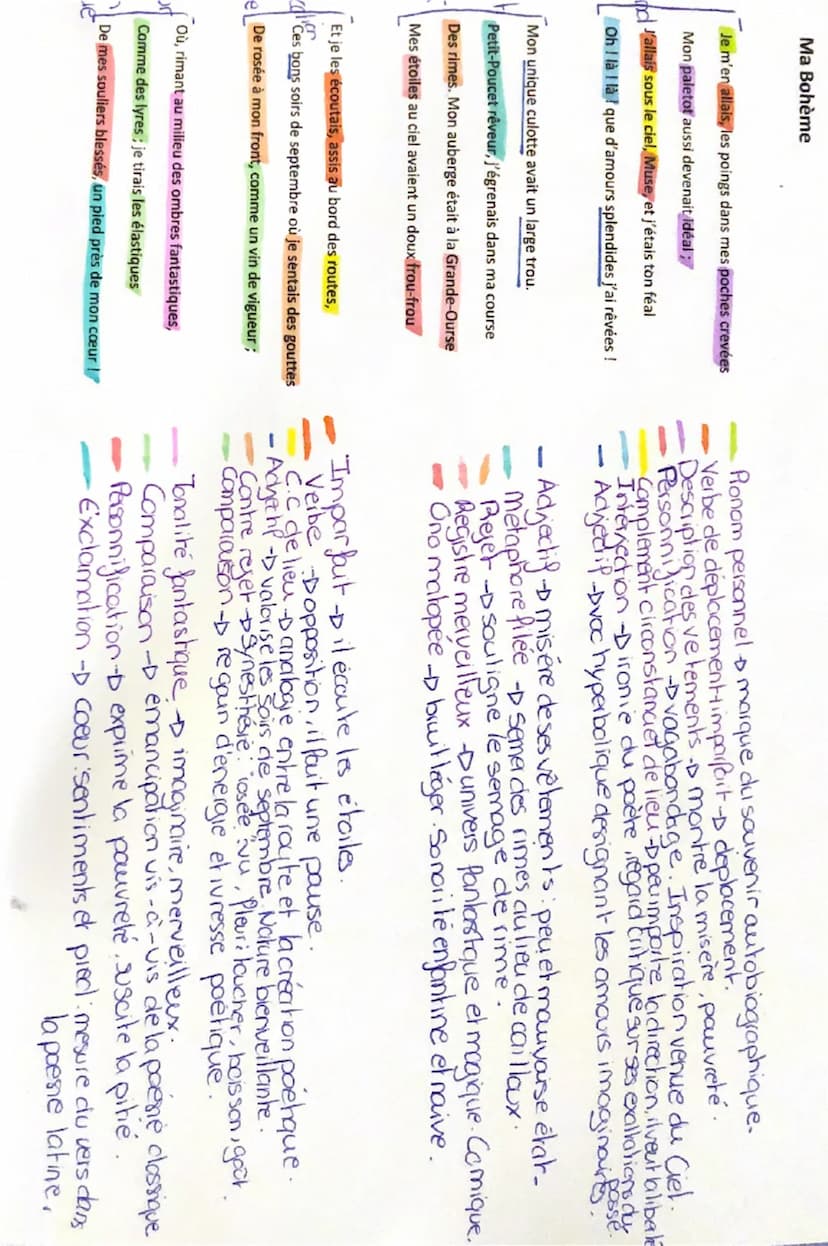 Ma Bohème
Je m'en allais, les poings dans mes poches crevées
Mon paletot aussi devenait idéal ;
J'allais sous le ciel, Muse, et j'étais ton féal
Oh ! là ! là ! que d'amours splendides j'ai rêvées !
Mon unique culotte avait un large trou.
Petit-Poucet rêveur, j'égrenais dans ma course
Des rimes. Mon auberge était à la Grande-Ourse
Mes étoiles au ciel avaient un doux frou-frou
Et je les écoutais, assis au bord des routes,
Ces bons soirs de septembre où je sentais des gouttes
De rosée à mon front, comme un vin de vigueur ;
Où, rimant au milieu des ombres fantastiques,
Comme des lyres ; je tirais les élastiques
De mes souliers blessés, un pied près de mon cœur !
Pronom personnel → marque du souvenir autobiographique.
Verbe de déplacement + imparfait → déplacement.
Description des vetements → montre la misère, pauvreté.
Personnification → vagabondage. Inspiration venue du Ciel.
Complément circonstanciel de lieu → peu importe la direction, il veut la liberté
Interjection → ironie du poète, regard critique sur ses exaltations du passé.
Adjectif → voc hyperbolique designant les amours imaginaires.
Adjectif → misère de ses vêtements : peu et mauvaise état.
Métaphore filée → sème des rimes au lieu de cailloux.
Rejet → souligne le semage de rime.
Registre merveilleux → univers fantastique et magique. Comique.
Onomatopée → bruit léger. Sonorité enfantine et naïve.
Imparfait → il écoute les étoiles.
Verbe → opposition, il fait une pause.
C.C de lieu → analogie entre la route et la création poétique.
Adjectif → valorise les soirs de septembre. Nature bienveillante.
Contre rejet → Synesthésie : rosée : vu, pleur : toucher, boisson, goût.
Comparaison → regain d'énergie et ivresse poétique.
Tonalité fantastique → imaginaire, merveilleux.
Comparaison → émancipation vis-à-vis de la poésie classique
Personnification → exprime la pauvreté, suscite la pitié.
Exclamation → coeur : sentiments et pied : mesure du vers dans
la poésie latine.